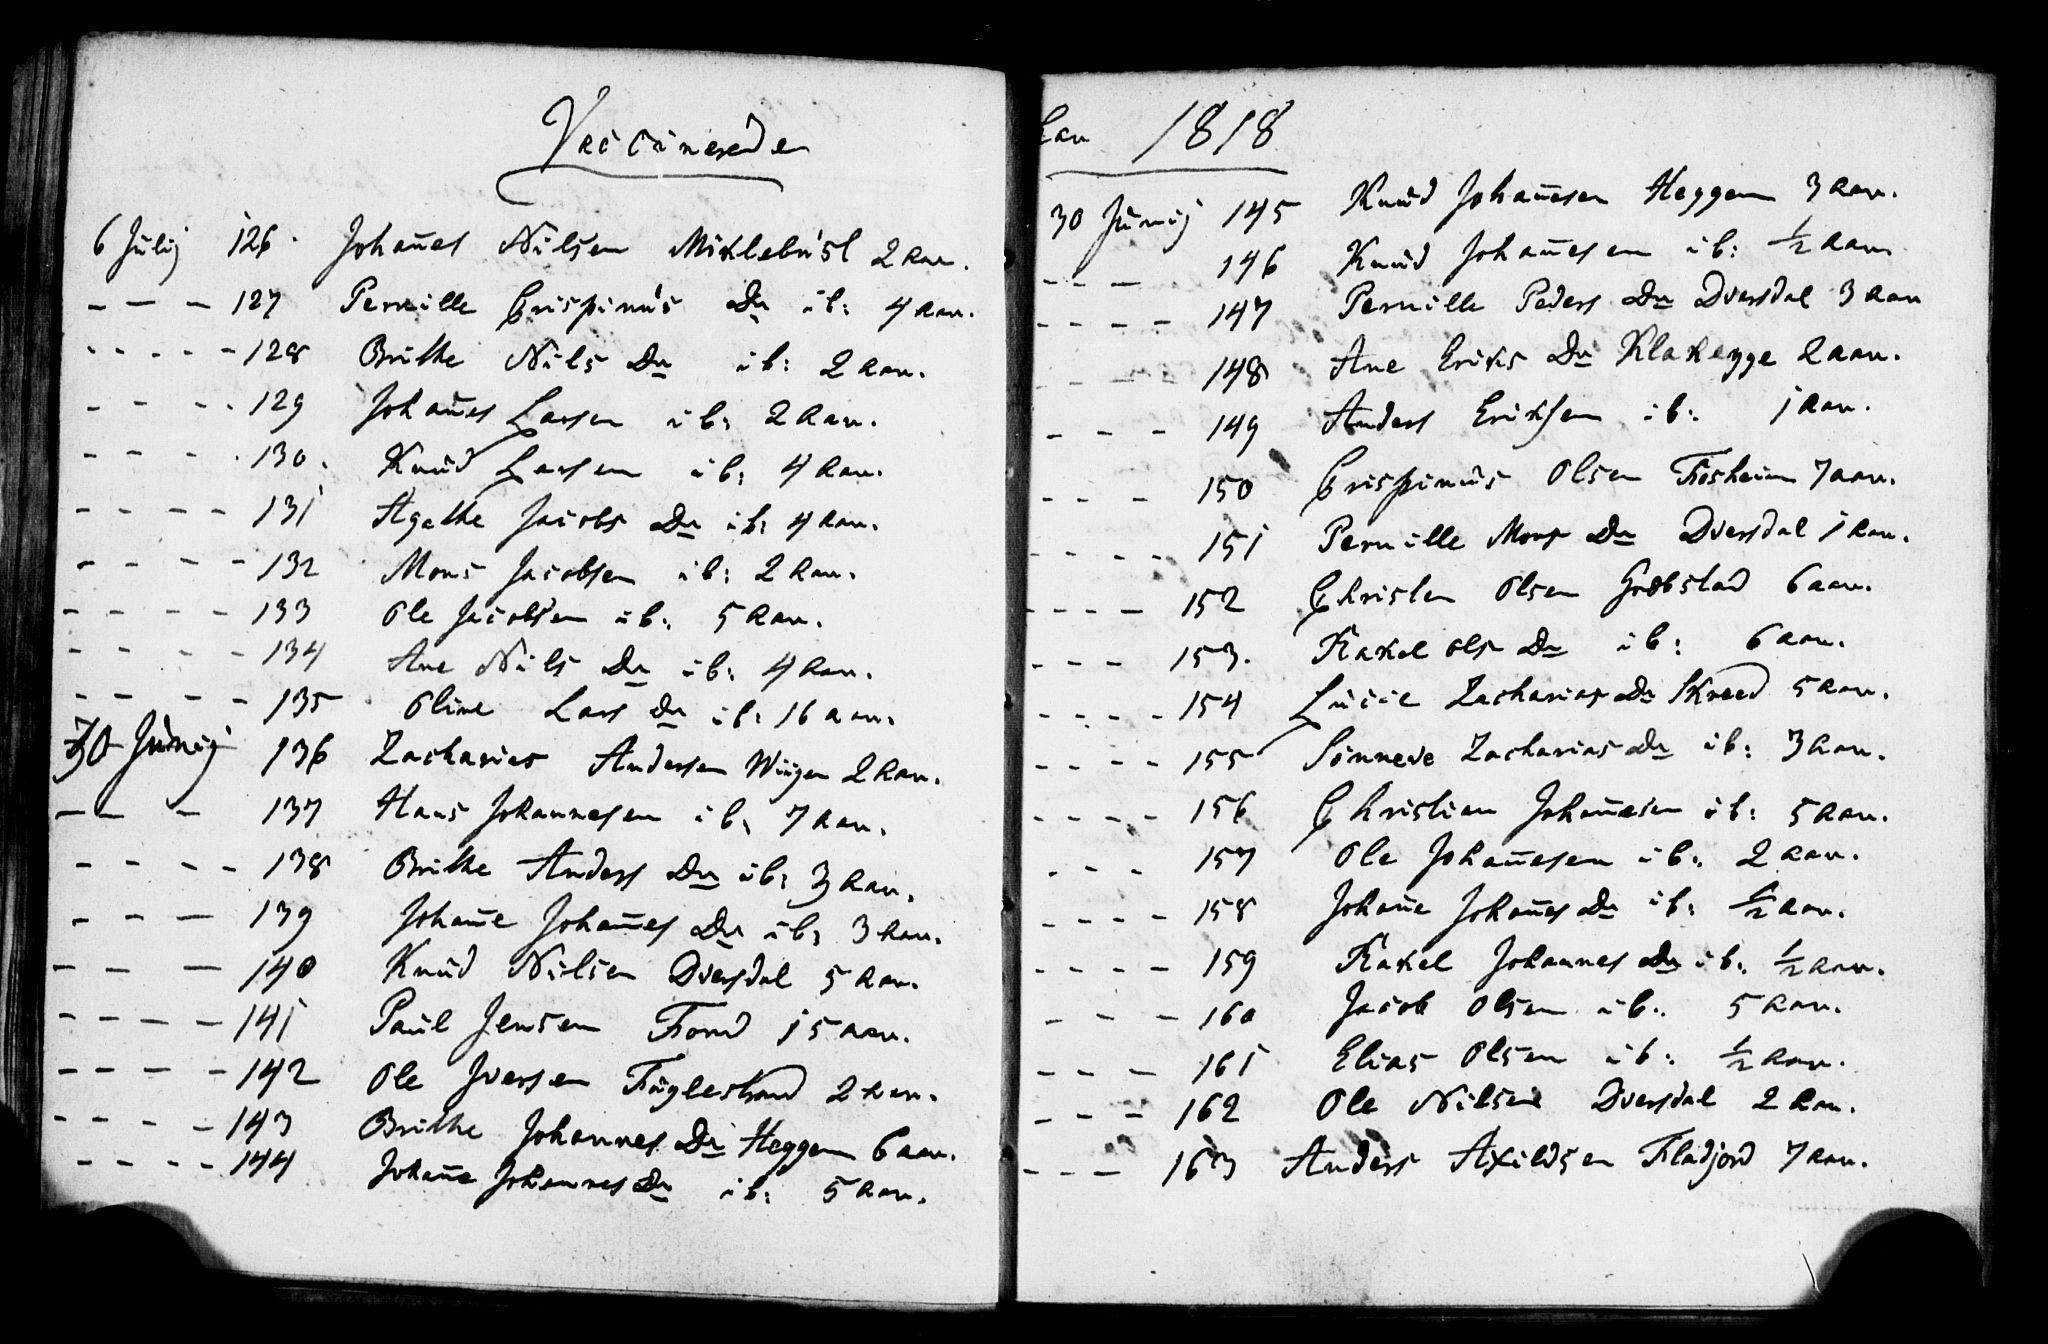 Vaccinerede
6 Julij 126. Johañes Nilsen Myklebúst 2 aar.
- - - 127 Pernille Crispinús Dr ib: 4 aar.
- - - - 128 Brithe Nils Dr ib: 2 aar.
- - - - 129 Johañes Larsen ib: 2 aar.
- - - - 130. Knud Larsen ib: 4 aar.
- - - - 131 Agethe Jacobs Dr ib: 4 aar.
- - - - 132 Mons Jacobsen ib: 2 aar.
- - - - 133 Ole Jacobsen ib: 5 aar.
- - - - 134 Ane Nils Dr ib: 4 aar.
- - - - 135 Oline Lars Dr ib: 16 aar.
30 Junij 136 Zacharias Andersen Wiigen 2 aar.
- - - 137 Hans Johannesen ib: 7 aar.
- - - - 138 Brithe Anders Dr ib: 3 aar.
- - - 139 Johañe Johañes Dr ib: 3 aar.
- - - 140 Knud Nilsen Dversdal 5 aar.
- - - - 141 Paul Jensen Fond 15 aar.
- - - - 142 Ole Iversen Fuglestrand 2 aar.
- - - - 143 Brithe Johannes Dr Heggem 6 aar.
- - - - 144 Johañe Johannes Dr ib: 5 aar.
aar 1818
30 Junij 145 Knud Johañesen Heggem 3 aar.
- - - 146 Knud Johañesen ib: ½ aar
- - - - 147 Pernille Peders Dr Dversdal 3 aar
- - - 148 Ane Eriks Dr Klakegge 2 aar.
- - - 149 Anders Eriksen ib: 1 aar.
- - - 150 Crispinus Olsen Fosheim 7 aar.
- - - - 151 Pernille Mons Dr Dversdal 1 aar.
- - - - 152 Christen Olsen Grøbstad 6 aar.
- - - 153. Rakel Ols Dr ib: 6 aar.
- - - - 154 Lucie Zacharias Dr Skreed 5 aar.
- - - - 155 Sønneve Zacharias Dr ib: 3 aar.
- - - - 156 Christian Johañesen ib: 5 aar.
- - - 157 Ole Johañesen ib: 2 aar.
- - - - 158 Johañe Johañes Dr ib: ½ aar.
- - - - 159 Rakel Johannes Dr ib: ½ aar.
- - - 160 Jacob Olsen ib: 5 aar.
- - - 161 Elias Olsen ib: ½ aar.
- - - 162 Ole Nilsen Dversdal 2 aar.
- - - 163 Anders Axildsen Fladjord 7 aar.